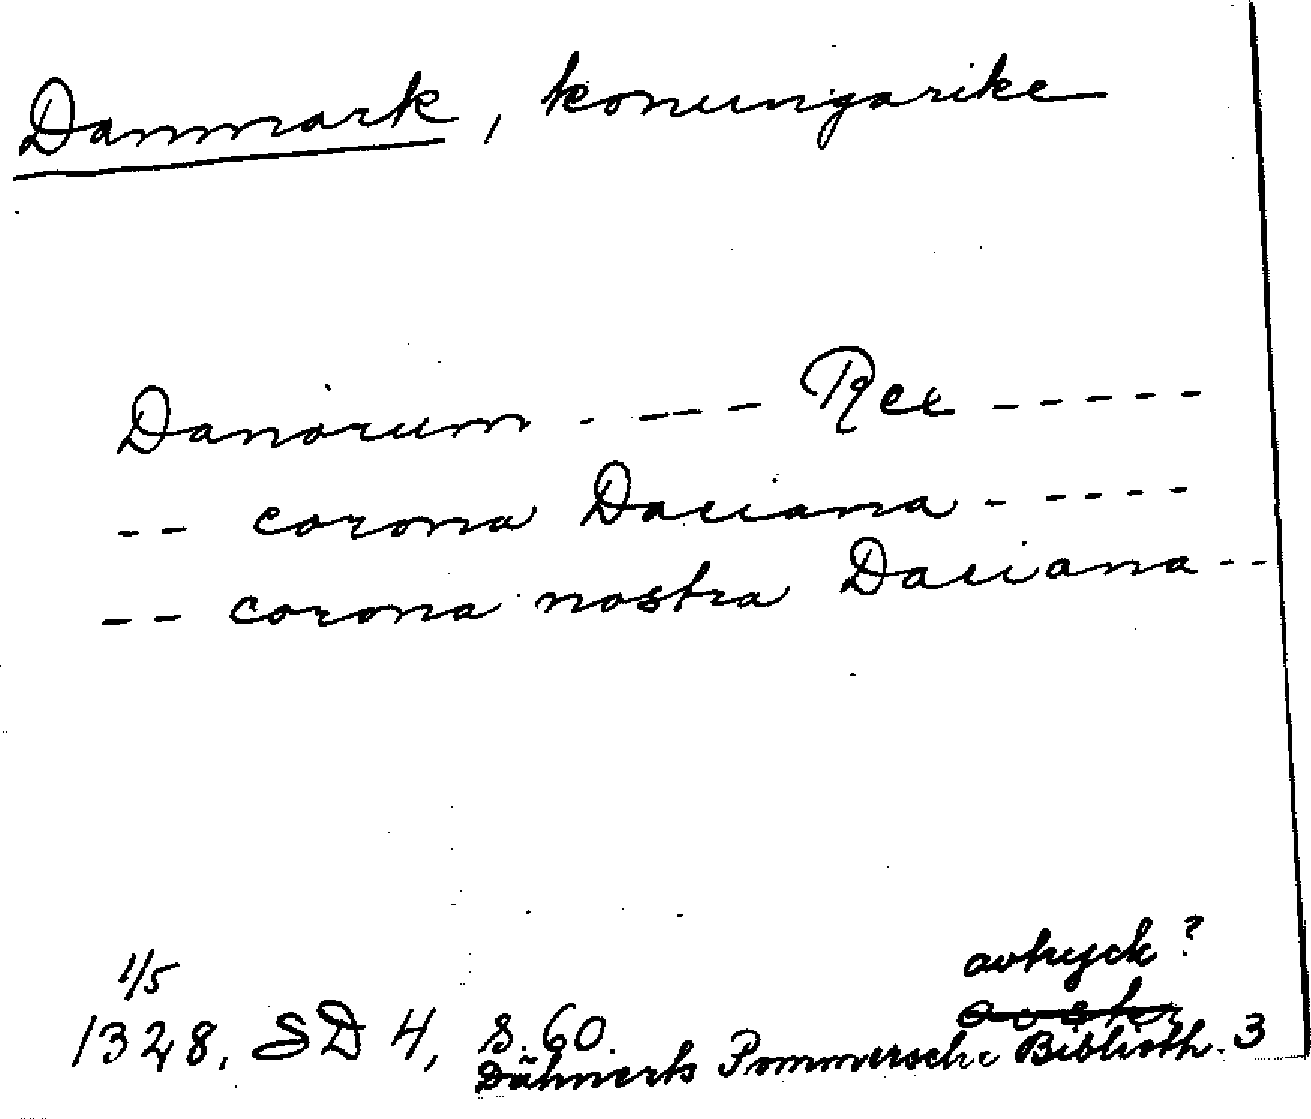 Danmark, konungarike
Danorum - - - - Rex - - - - -
-- corona Daciana - - - - -
-- corona nostra Daciana --
avtryck?
1/5
1328, SD 4, s. 60.
Dähnerts Pommersche Biblioth. 3